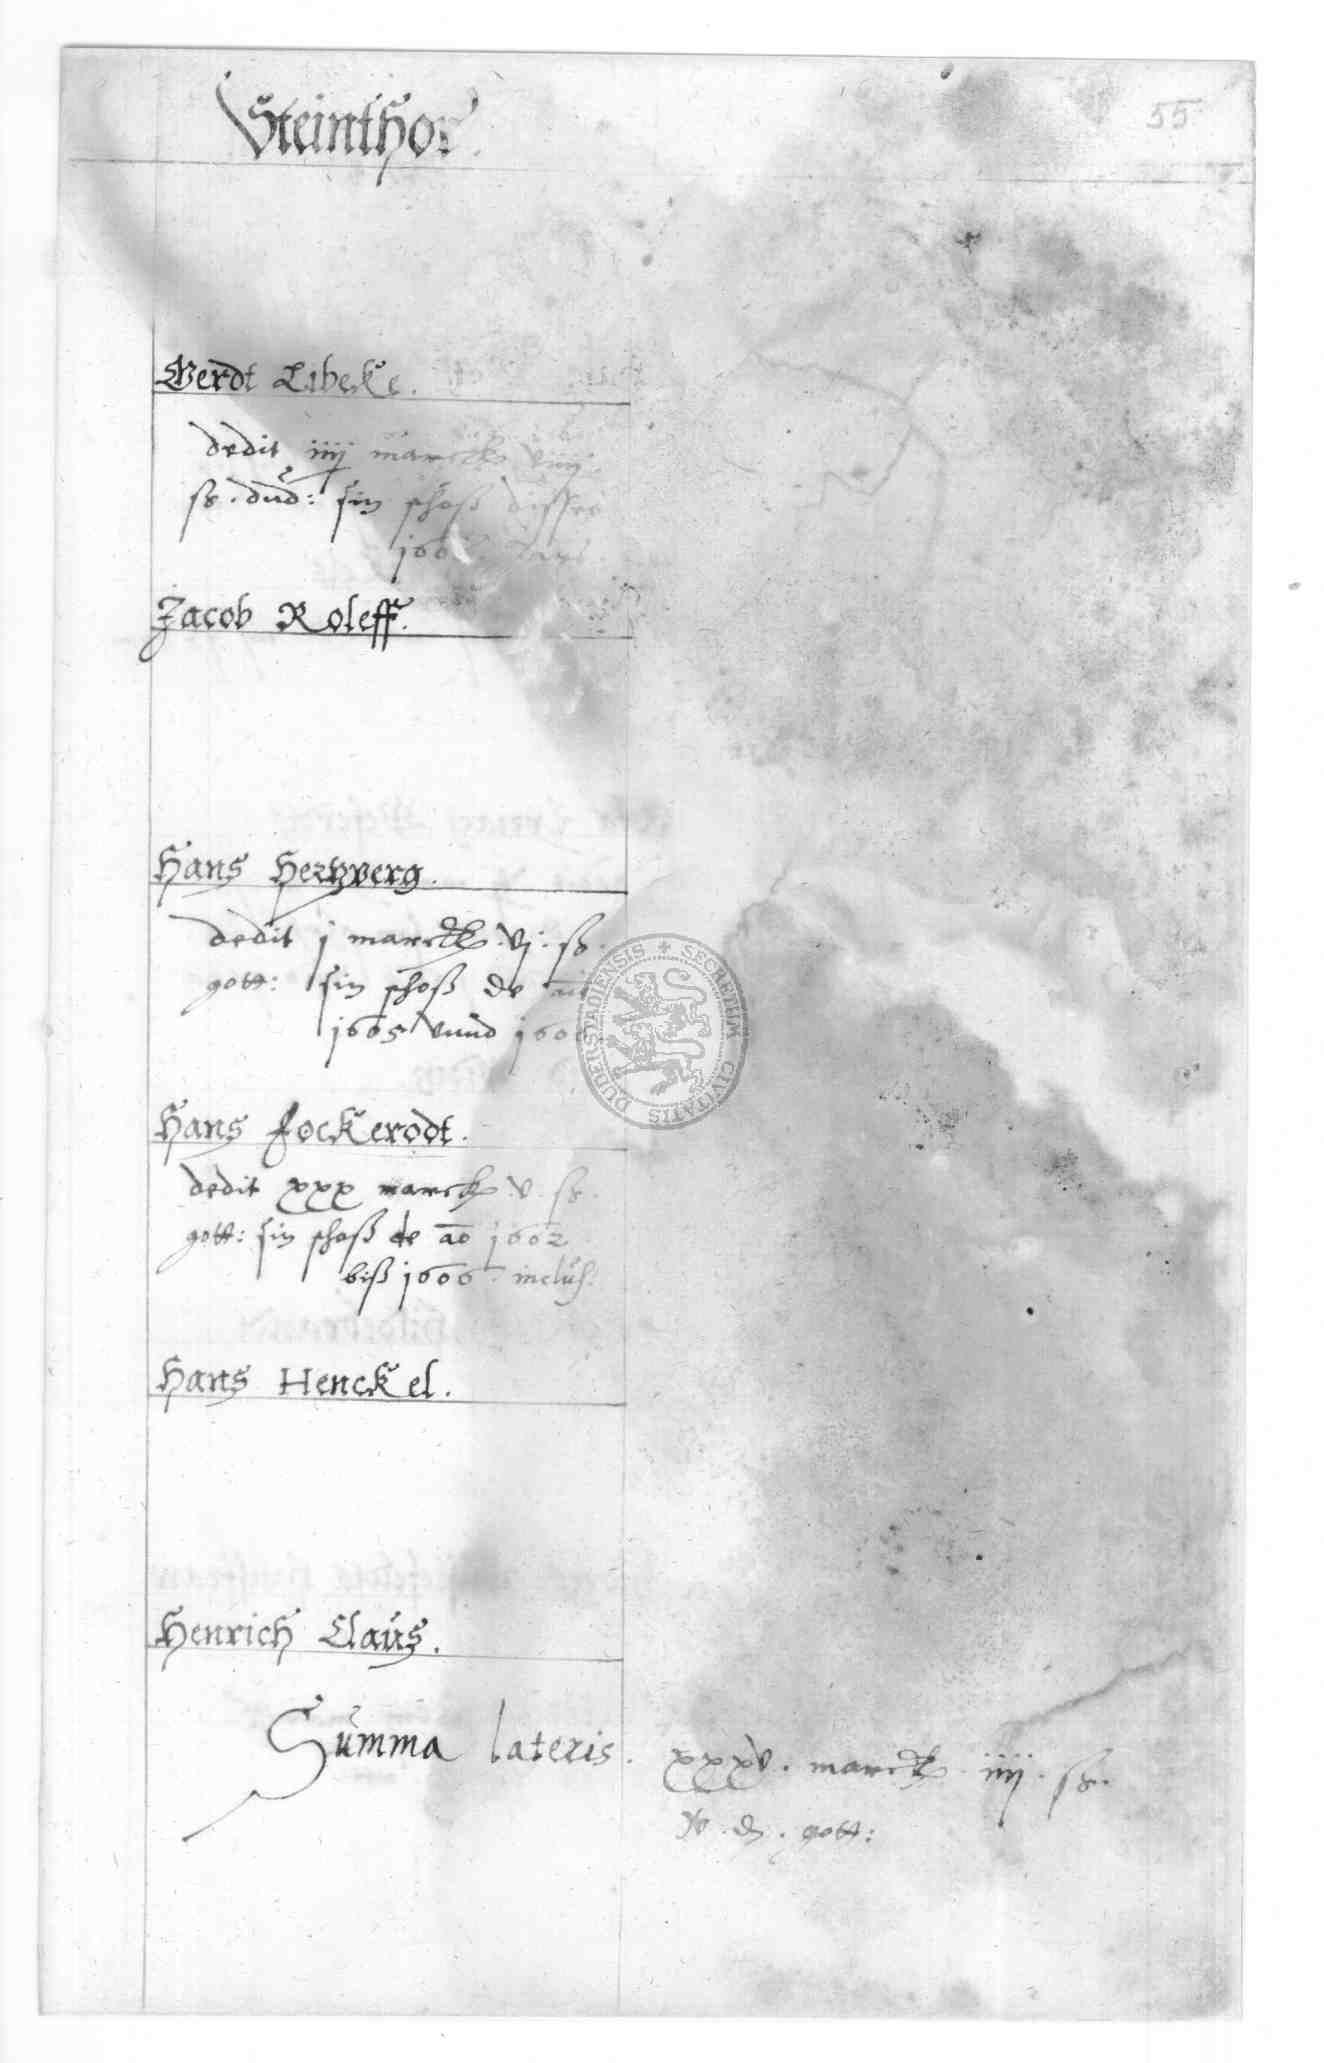 55
Steinthor.
Gerdt Libeke.
dedit iiij marck viiij
ß. dud: sin schoß disses
Jacob Roleff.
Hans Hertzberg.
dedit j marck. vj. ß.
gott: sin schoß de
1605 vnnd 1606
SECRETUM CIVITATIS DUDERSTADIENSIS
Hans Fockerodt.
dedit xxx marck v ß.
gott: sin schoß de ao 1602
biß 1606. inclus:
Hans Henckel.
Henrich Claus.
Summa lateris. xxxv. marck. iiij. ß.
d. gott: